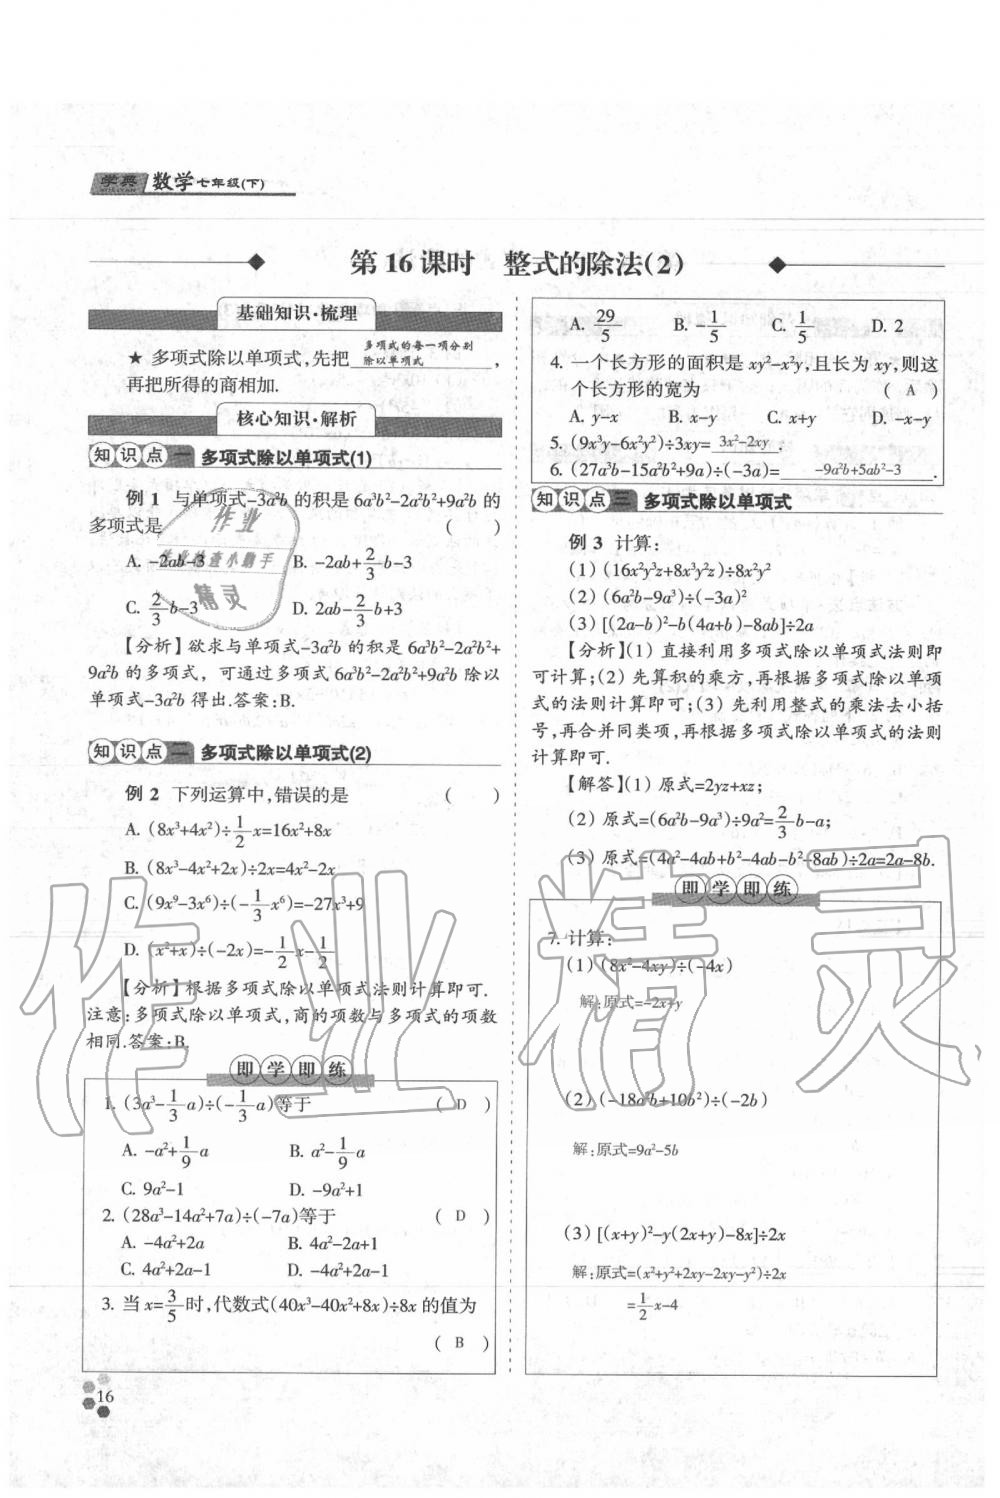 学典 数学七年级(下)
第16课时 整式的除法(2)
基础知识·梳理
★ 多项式除以单项式,先把 多项式的每一项分别除以单项式 ,
再把所得的商相加.
核心知识·解析
知识点一 多项式除以单项式(1)
例 1 与单项式-3a²b 的积是 6a³b²-2a²b²+9a²b 的
多项式是 ( )
A. -2ab-3 B. -2ab+2/3b-3
C. 2/3b-3 D. 2ab-2/3b+3
【分析】欲求与单项式-3a²b 的积是 6a³b²-2a²b²+
9a²b 的多项式，可通过多项式 6a³b²-2a²b²+9a²b 除以
单项式-3a²b 得出.答案:B.
知识点二 多项式除以单项式(2)
例 2 下列运算中,错误的是 ( )
A. (8x³+4x²)÷1/2x=16x²+8x
B. (8x³-4x²+2x)÷2x=4x²-2x
C. (9x⁹-3x⁶)÷(-1/3x⁶)=-27x³+9
D. (x²+x)÷(-2x)=-1/2x-1/2
【分析】根据多项式除以单项式法则计算即可.
注意:多项式除以单项式,商的项数与多项式的项数
相同.答案:B.
即学即练
1. (3a³-1/3a)÷(-1/3a)等于 ( D )
A. -a²+1/9a B. a²-1/9a
C. 9a²-1 D. -9a²+1
2. (28a³-14a²+7a)÷(-7a)等于 ( D )
A. -4a²+2a B. 4a²-2a+1
C. 4a²+2a-1 D. -4a²+2a-1
3. 当 x=3/5时,代数式(40x³-40x²+8x)÷8x 的值为
( B )
A. 29/5 B. -1/5 C. 1/5 D. 2
4. 一个长方形的面积是 xy²-x²y,且长为 xy,则这
个长方形的宽为 ( A )
A. y-x B. x-y C. x+y D. -x-y
5. (9x³y-6x²y²)÷3xy= 3x²-2xy .
6. (27a³b-15a²b²+9a)÷(-3a)= -9a²b+5ab²-3 .
知识点三 多项式除以单项式
例 3 计算:
(1) (16x²y³z+8x³y²z)÷8x²y²
(2) (6a²b-9a³)÷(-3a)²
(3) [(2a-b)²-b(4a+b)-8ab]÷2a
【分析】(1) 直接利用多项式除以单项式法则即
可计算;(2) 先算积的乘方,再根据多项式除以单项
式的法则计算即可;(3) 先利用整式的乘法去小括
号,再合并同类项,再根据多项式除以单项式的法则
计算即可.
【解答】(1) 原式=2yz+xz;
(2) 原式=(6a²b-9a³)÷9a²=2/3b-a;
(3) 原式=(4a²-4ab+b²-4ab-b²-8ab)÷2a=2a-8b.
即学即练
7. 计算:
(1) (8x²-4xy)÷(-4x)
解:原式=-2x+y
(2) (-18a²b+10b²)÷(-2b)
解:原式=9a²-5b
(3) [(x+y)²-y(2x+y)-8x]÷2x
解:原式=(x²+y²+2xy-2xy-y²)÷2x
=1/2x-4
16
作业
作业检查小助手
精灵
作业精灵